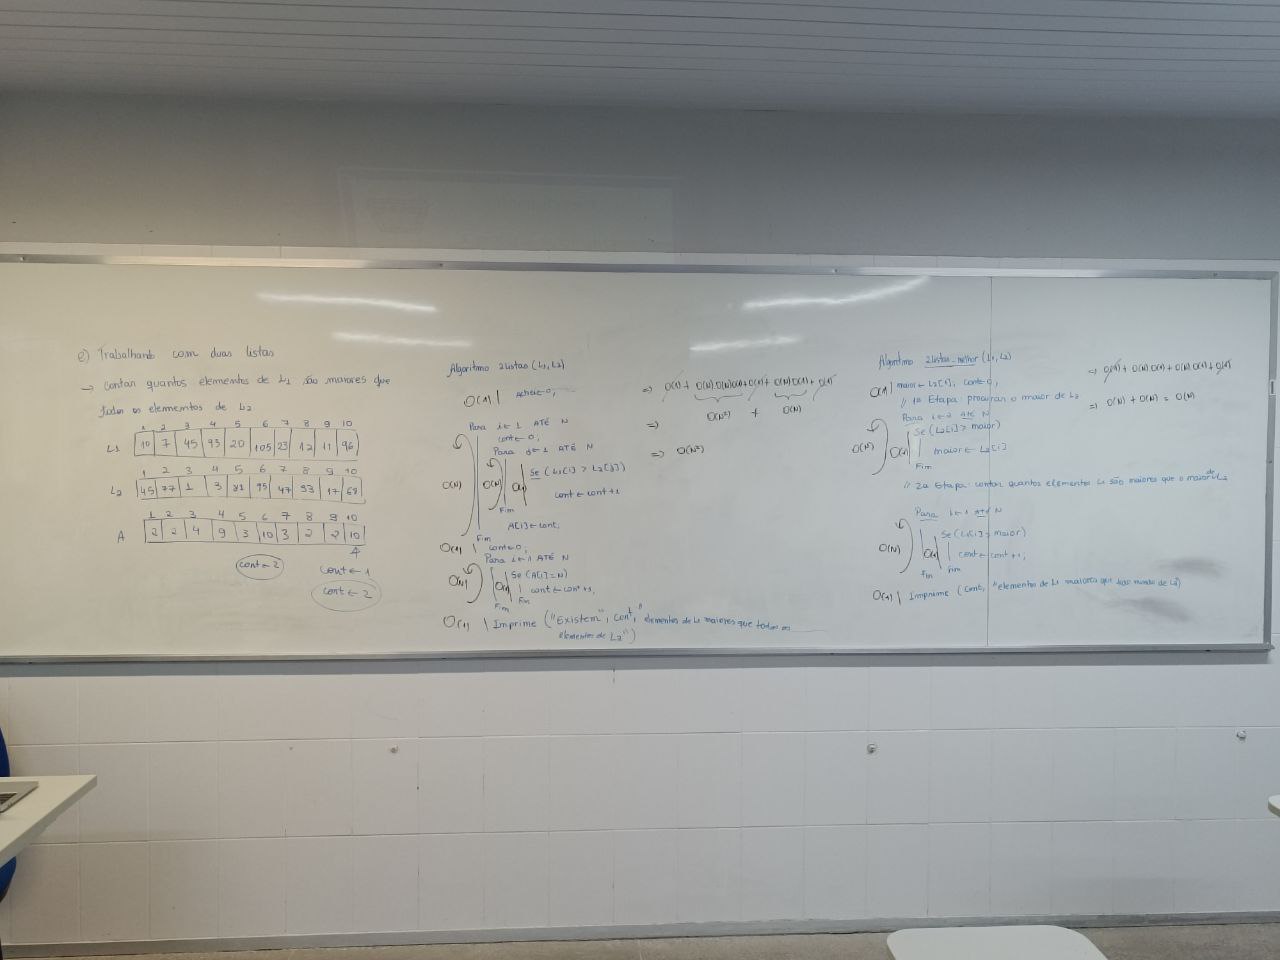 e) Trabalhando com duas listas
→ contar quantos elementos de L1 são maiores que
todos os elementos de L2
1 2 3 4 5 6 7 8 9 10
L1 10 7 45 93 20 105 23 12 11 96
1 2 3 4 5 6 7 8 9 10
L2 45 77 1 3 81 95 47 93 17 68
1 2 3 4 5 6 7 8 9 10
A 2 2 4 9 3 10 3 2 2 10
cont ← 2
cont ← 1
cont ← 2
Algoritmo 2Listas (L1, L2)
O(1) | ←0;
Para i ← 1 ATÉ N
cont ← 0;
Para j ← 1 ATÉ N
O(N) O(N) O(1) Se (L1[i] > L2[j])
cont ← cont+1
Fim
A[i] ← cont;
Fim
O(1) | cont ← 0;
Para i ← 1 ATÉ N
O(N) O(1) Se (A[i] = N)
cont ← cont+1;
Fim
Fim
O(1) | Imprime ("Existem", cont, "elementos de L1 maiores que todos os
elementos de L2")
⇒ O(1) + O(N).O(N).O(1) + O(1) + O(N).O(1) + O(1)
⇒ O(N²) + O(N)
⇒ O(N²)
Algoritmo 2Listas-melhor (L1, L2)
O(1) | maior ← L2[1]; cont ← 0;
// 1a Etapa: procurar o maior de L2
Para i ← 2 ATÉ N
O(N) O(1) Se (L2[i] > maior)
maior ← L2[i]
Fim
// 2a Etapa: contar quantos elementos L1 são maiores que o maior de L2
Para i ← 1 até N
O(N) O(1) Se (L1[i] > maior)
cont ← cont+1;
Fim
Fim
O(1) | Imprime (cont, "elementos de L1 maiores que de L2)
⇒ O(1) + O(N).O(1) + O(N).O(1) + O(1)
⇒ O(N) + O(N) = O(N)